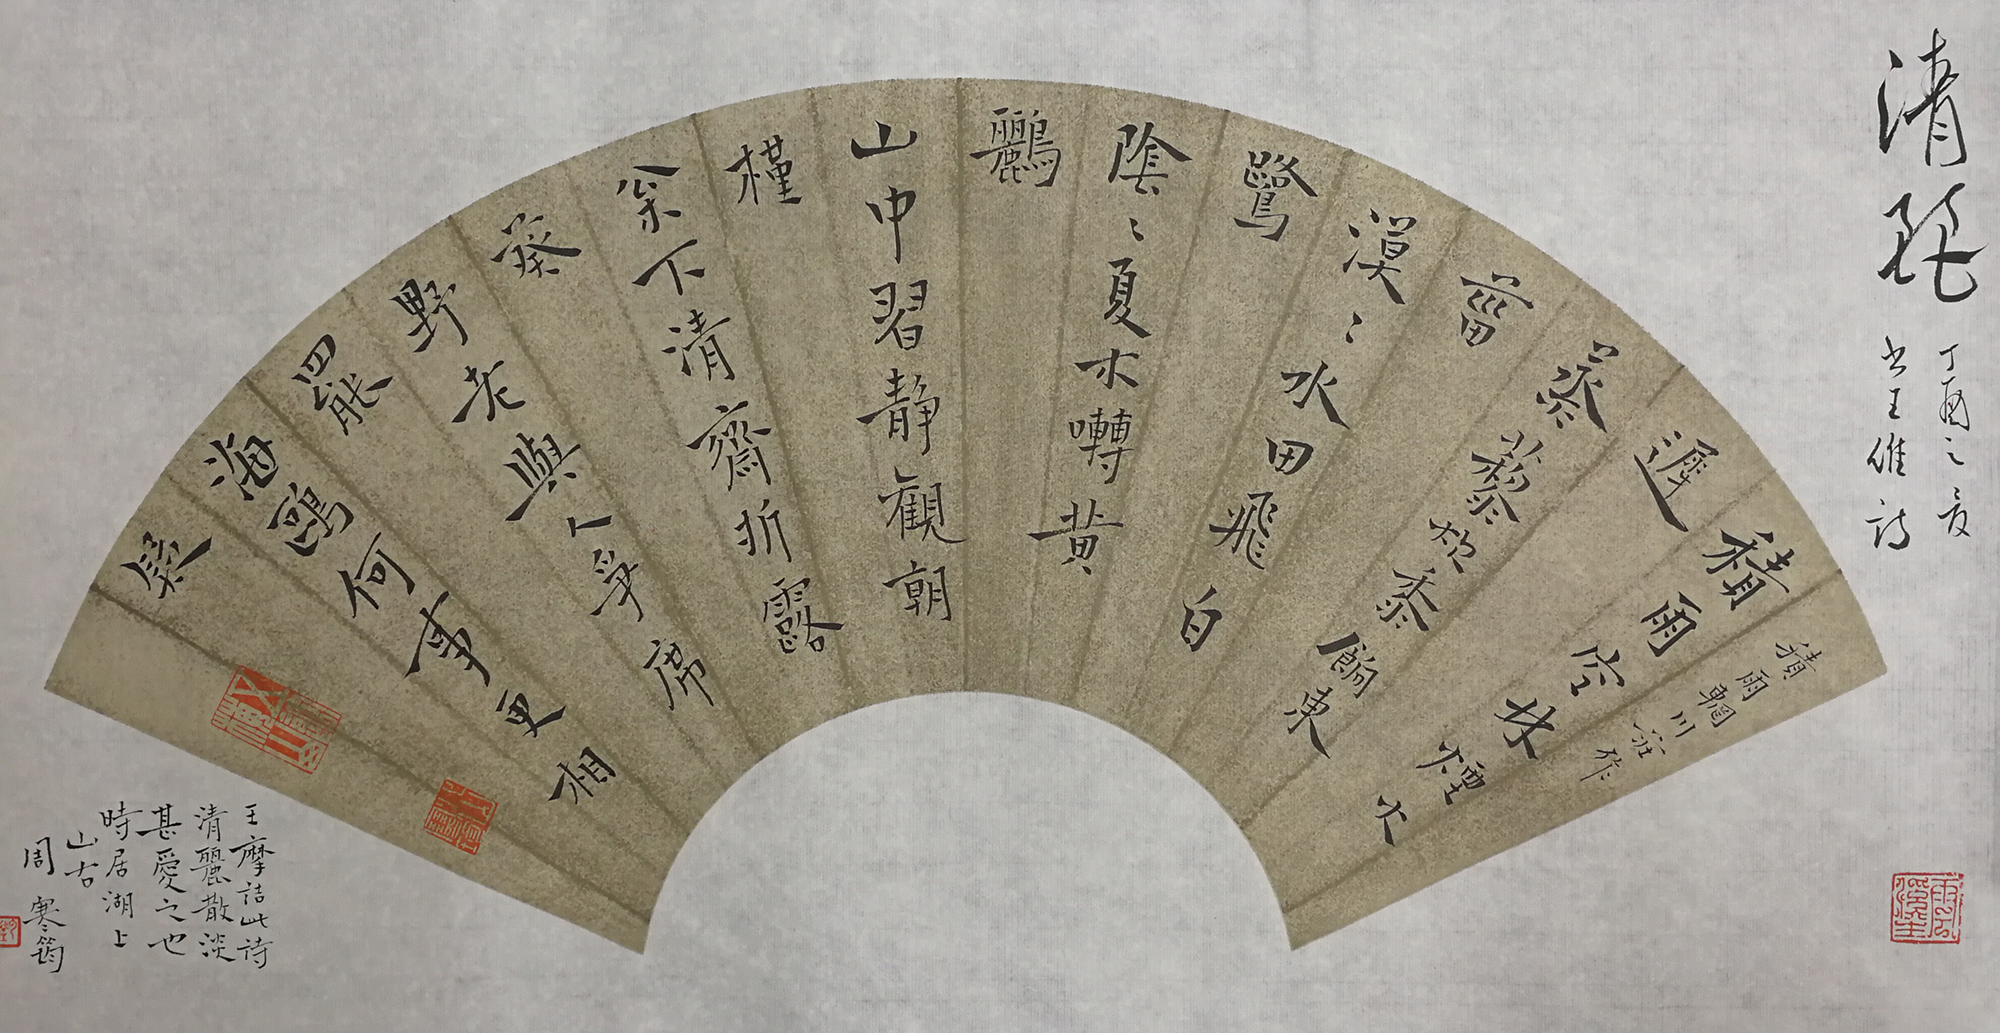 清麗
丁酉之夏
書王維詩
積雨輞川莊作
積雨空林煙火
遲
蒸藜炊黍餉東
菑
漠〻水田飛白
鷺
陰〻夏木囀黃
鸝
山中習靜觀朝
槿
松下清齋折露
葵
野老與人爭席
罷
海鷗何事更相
疑
王摩詰此詩
清麗散淡
甚愛之也
時居湖上
山古
周寒筠